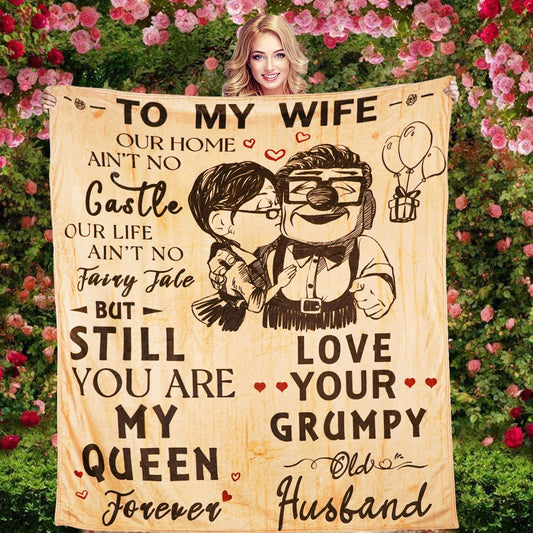 TO MY WIFE
OUR HOME
AIN'T NO
Castle
OUR LIFE
AIN'T NO
Fairy Tale
BUT
STILL
YOU ARE
MY
QUEEN
Forever
LOVE
YOUR
GRUMPY
Old
Husband